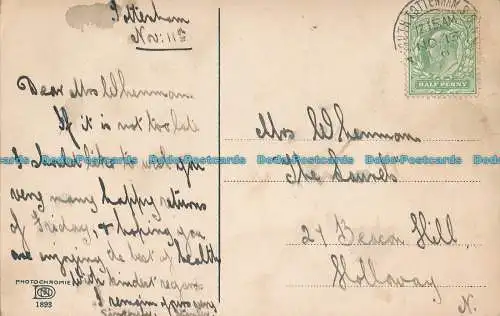 Tottenham
Nov: 11th
Dear Mrs Whenman
If it is not too late
I should like to wish you
very many happy returns
of Friday, & hoping you
are enjoying the best of health
with kindest regards
I remain yours very
Sincerely
PHOTOCHROMIE
1893
SOUTH TOTTENHAM S.O.
7.15 AM
NO 13
HALF PENNY
Mrs Whenman
The Laurels
27 Beacon Hill
Holloway
N.
Dodo-Postcards Dodo-Postcards Dodo-Postcards Dodo-Postcards